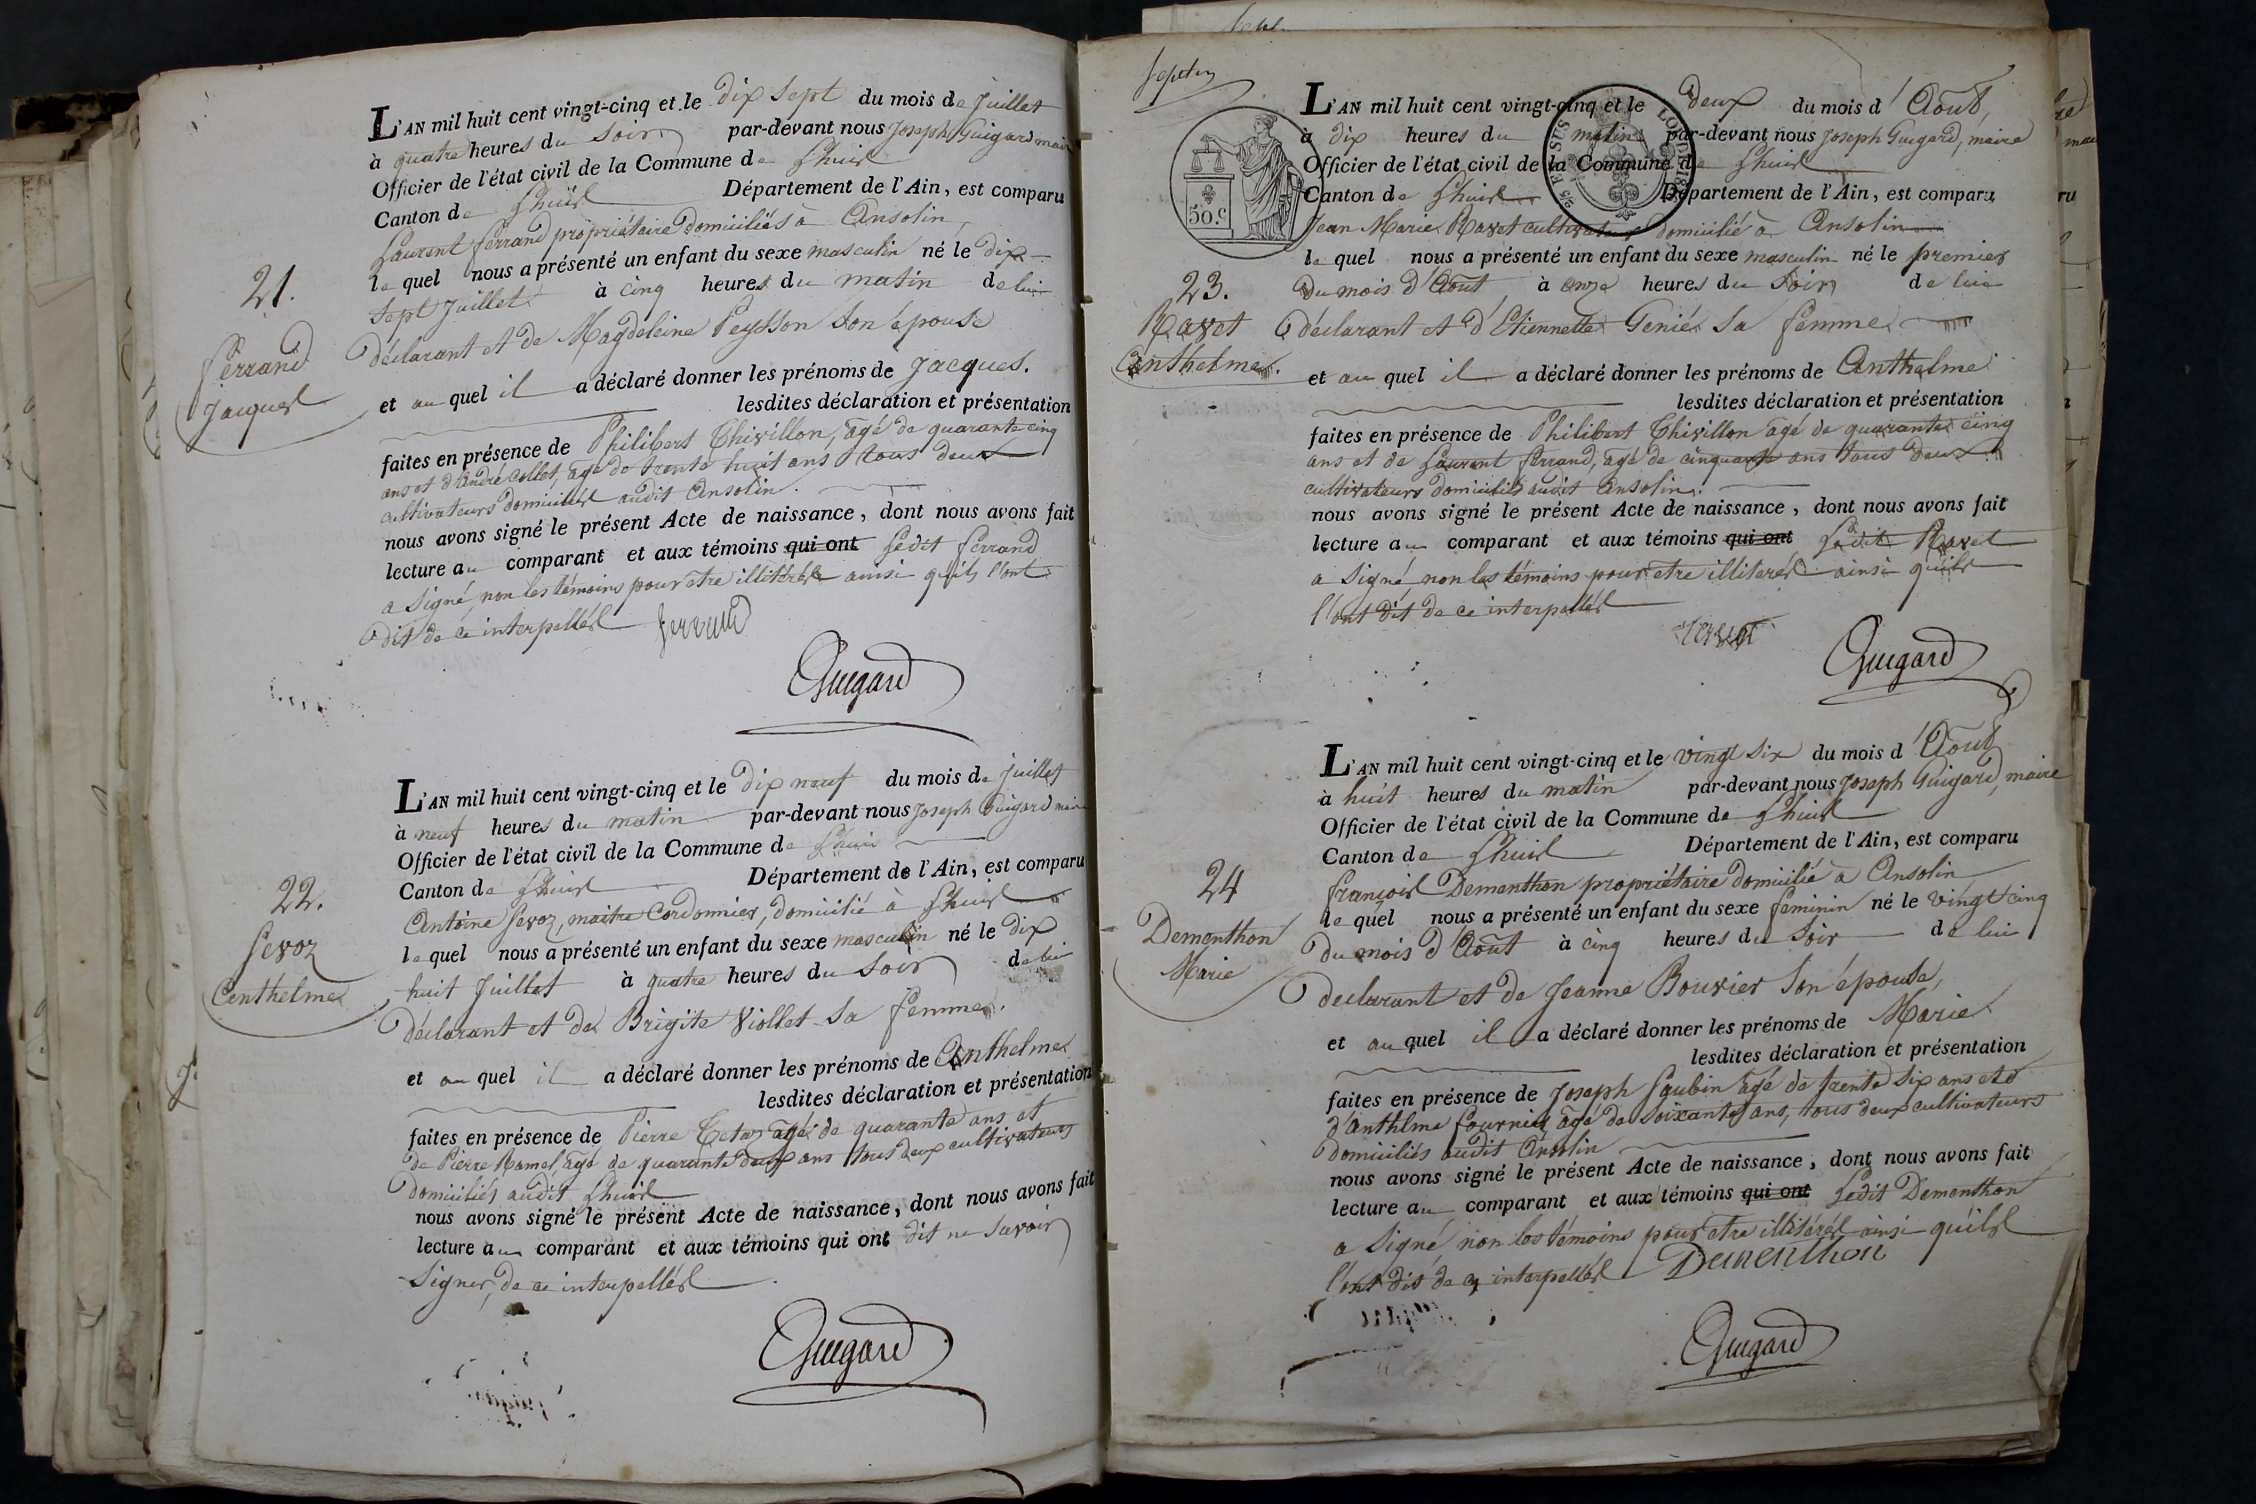 21.
Ferrand
Jacques
L'AN mil huit cent vingt-cinq et le dix sept du mois de Juillet
à quatre heures du soir par-devant nous Joseph Guigard maire
Officier de l'état civil de la Commune de Lhuis
Canton de Lhuis Département de l'Ain, est comparu
Laurent Ferrand propriétaire domiciliés à Ansolin
le quel nous a présenté un enfant du sexe masculin né le dix
sept Juillet à cinq heures du matin de lui
déclarant et de Magdeleine Peysson son épouse
et au quel il a déclaré donner les prénoms de Jacques.
lesdites déclaration et présentation
faites en présence de Philibert Thivillon, agé de quarante cinq
ans et d'André Collet, agé de trente huit ans tous deux
cultivateurs domiciliés audit Ansolin.
nous avons signé le présent Acte de naissance, dont nous avons fait
lecture au comparant et aux témoins qui ont Ledit Ferrand
a signé, non les témoins pour etre illitérés ainsi qu'ils l'ont
dit de ce interpellés ferrand
Guigard
22.
Sevoz
Anthelme
L'AN mil huit cent vingt-cinq et le dix neuf du mois de Juillet
à neuf heures du matin par-devant nous Joseph Guigard maire
Officier de l'état civil de la Commune de Lhuis
Canton de Lhuis Département de l'Ain, est comparu
Antoine Sevoz, maitre Cordonnier, domicilié à Lhuis
le quel nous a présenté un enfant du sexe masculin né le dix
huit Juillet à quatre heures du soir de lui
déclarant et de Brigite Viollet sa femme.
et au quel il a déclaré donner les prénoms de Anthelme
lesdites déclaration et présentation
faites en présence de Pierre Tetaz agé de quarante ans et
de Pierre Ramel, agé de quarante deux ans tous deux cultivateurs
domiciliés audit Lhuis
nous avons signé le présent Acte de naissance, dont nous avons fait
lecture au comparant et aux témoins qui ont dit ne savoir
signer, de ce interpellés
Guigard
septem
50.c
23.
Ravet
Anthelme.
L'AN mil huit cent vingt-cinq et le deux du mois d'Août,
à dix heures du matin par-devant nous Joseph Guigard, maire
Officier de l'état civil de la Commune de Lhuis
Canton de Lhuis Département de l'Ain, est comparu
Jean Marie Ravet cultivateur domicilié à Ansolin
le quel nous a présenté un enfant du sexe masculin né le premier
du mois d'Août à onze heures du soir de lui
déclarant et d'Etiennette Genié sa femme
et au quel il a déclaré donner les prénoms de Anthelme
lesdites déclaration et présentation
faites en présence de Philibert Thivillon agé de quarante cinq
ans et de Laurent Ferrand, agé de cinquante ans tous deux
cultivateurs domiciliés audit Ansolin.
nous avons signé le présent Acte de naissance, dont nous avons fait
lecture au comparant et aux témoins qui ont Ledit Ravet
a signé non les témoins pour etre illiterés ainsi qu'ils
l'ont dit de ce interpellés
ravet
Guigard
24
Dementhon
Marie
L'AN mil huit cent vingt-cinq et le vingt six du mois d'Août
à huit heures du matin par-devant nous Joseph Guigard, maire
Officier de l'état civil de la Commune de Lhuis
Canton de Lhuis Département de l'Ain, est comparu
François Dementhon propriétaire domicilié à Ansolin
le quel nous a présenté un enfant du sexe feminin né le vingt cinq
du mois d'Août à cinq heures du soir de lui
declarant et de Jeanne Bouvier son épouse,
et au quel il a déclaré donner les prénoms de Marie
lesdites déclaration et présentation
faites en présence de Joseph Gaubin agé de trente six ans et
d'Anthlme Fournier agé de soixante ans, tous deux cultivateurs
domiciliés audit Ansolin
nous avons signé le présent Acte de naissance, dont nous avons fait
lecture au comparant et aux témoins qui ont Ledit Dementhon
a signé non les témoins pour etre illitérés ainsi qu'ils
l'ont dit de ce interpellés Dementhon
Guigard